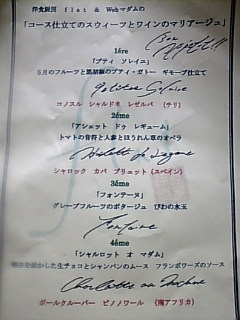 洋食厨団 flet & Webマダムの
「コース仕立てのスウィーツとワインのマリアージュ」
Bon Appétit!!
1ére
「プティ ソレイユ」
5月のフルーツと黒胡椒のプティ・ガトー ギモーブ仕立て
Petites Soleile
コノスル シャルドネ レゼルバ (チリ)
2éme
「アシェット ドゥ レギューム」
トマトの音符と人参とほうれん草のオペラ
シャロック カバ ブリュット(スペイン)
3éme
「フォンテーヌ」
グレープフルーツのポタージュ びわの水玉
Fontaine
4éme
「シャルロット オ マダム」
を活かした生チョコとシャンパンのムース フランボワーズのソース
Charlottes au Madame
ポールクルーバー ピノノワール (南アフリカ)